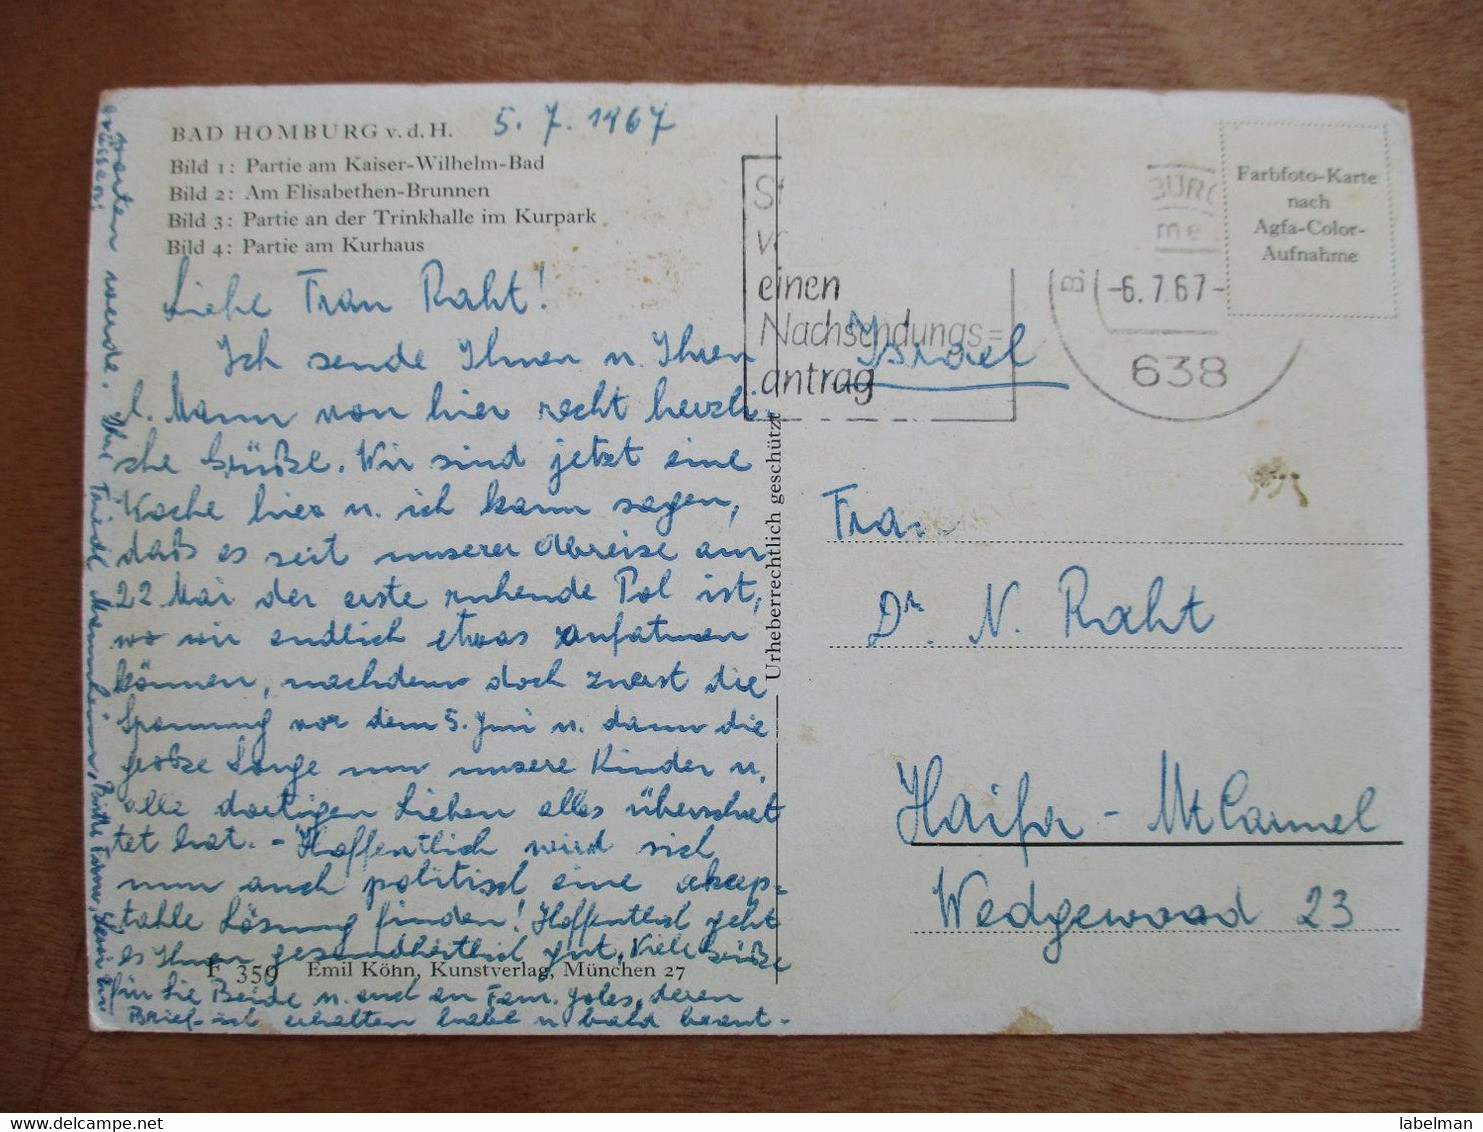 BAD HOMBURG v. d. H.
5. 7. 1967
Bild 1: Partie am Kaiser-Wilhelm-Bad
Bild 2: Am Elisabethen-Brunnen
Bild 3: Partie an der Trinkhalle im Kurpark
Bild 4: Partie am Kurhaus
Liebe Frau Raht!
Ich sende Ihnen u. Ihren
l. Mann von hier recht herzli-
che Grüße. Wir sind jetzt eine
Woche hier u. ich kann sagen,
daß es seit unserer Abreise am
22 Mai der erste ruhende Pol ist,
wo wir endlich etwas aufatmen
können, nachdem doch zuerst die
Spannung vor dem 5. Juni u. dann die
große Sorge um unsere Kinder u.
alle dortigen Lieben alles überschat
tet hat. - Hoffentlich wird sich
nun auch politisch eine akzep-
table Lösung finden! Hoffentlich geht
es Ihnen gesundheitlich gut. Viele Grüße
für Sie Beide u. auch an Fam. Joles, deren
Brief ich erhalten habe u. bald beant-
worten werde. Ihre Friedl Mannheim, Bitte Fam.
grüssen!
F 359 Emil Köhn, Kunstverlag, München 27
Urheberrechtlich geschützt
St
vo
einen
Nachsendungs=
antrag
BURG
me
B
-6. 7. 67-
638
Farbfoto-Karte
nach
Agfa-Color-
Aufnahme
Israel
Frau
Dr. N. Raht
Haifa - Mt Carmel
Wedgewood 23
labelman
www.delcampe.net